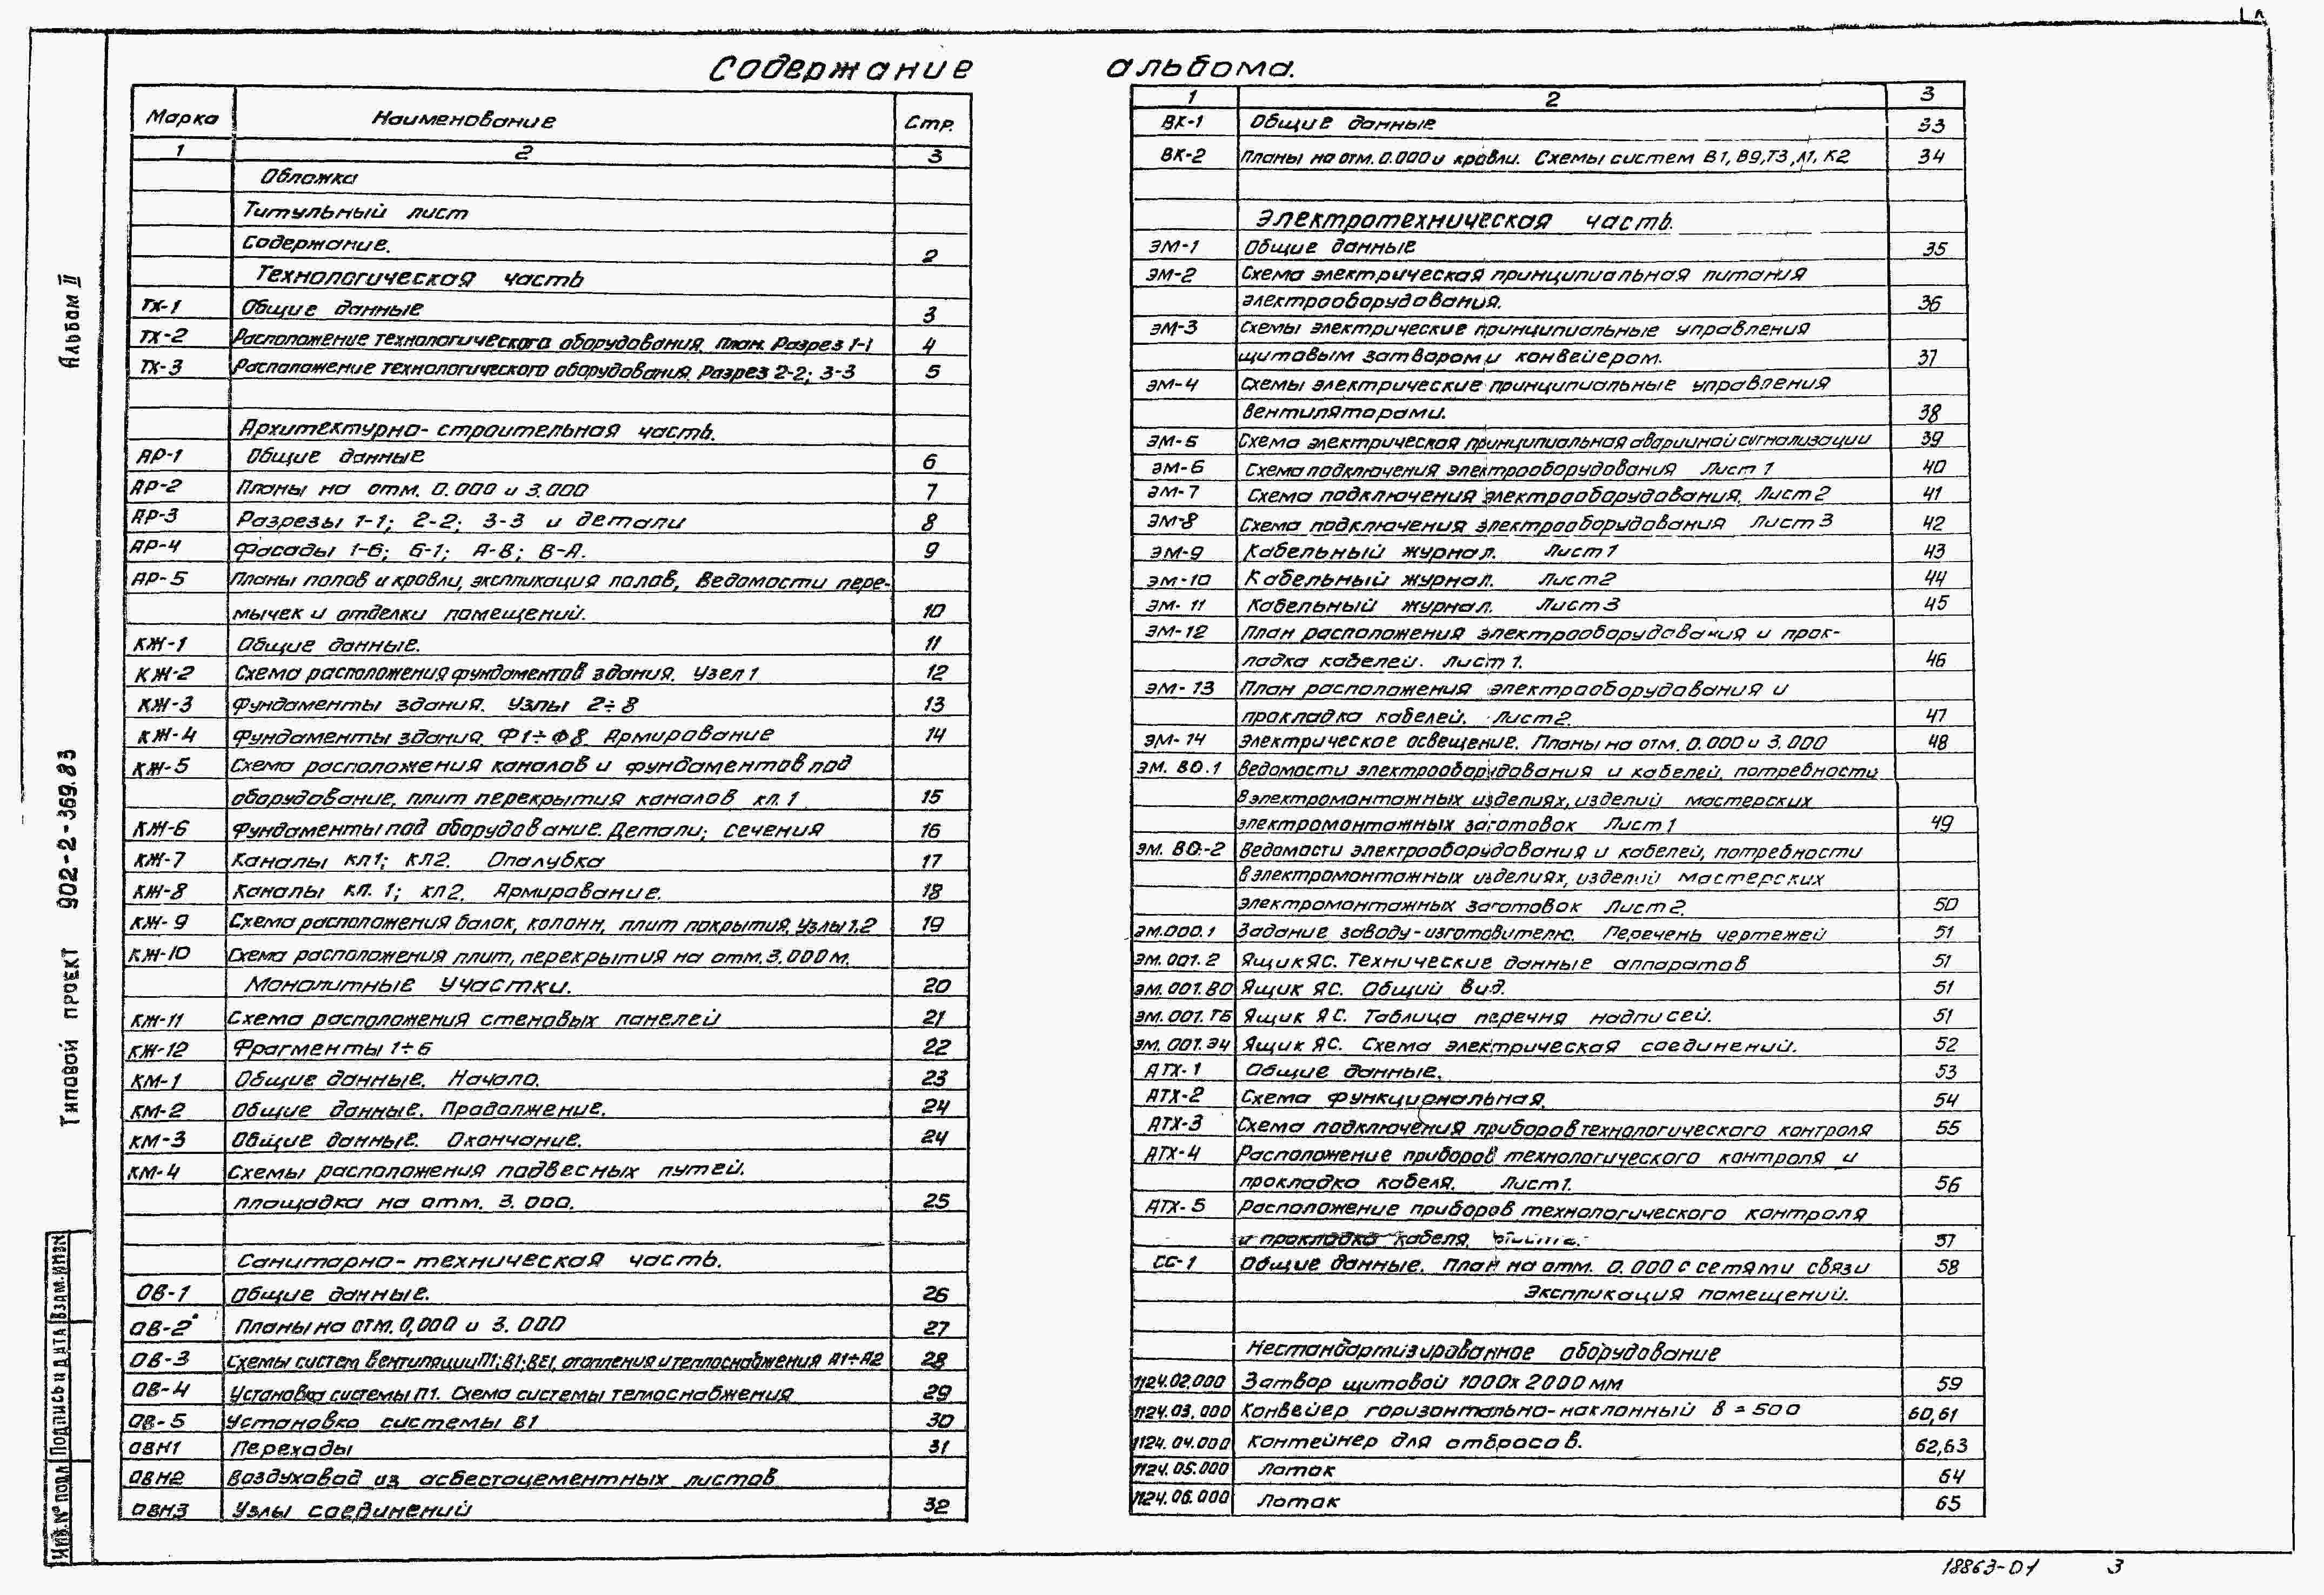 Содержание альбома.
Марка Наименование Стр.
1 2 3
Обложка
Титульный лист
Содержание. 2
Технологическая часть
ТХ-1 Общие данные 3
ТХ-2 Расположение технологического оборудования. План. Разрез 1-1 4
ТХ-3 Расположение технологического оборудования. Разрез 2-2; 3-3 5
Архитектурно-строительная часть.
АР-1 Общие данные 6
АР-2 Планы на отм. 0.000 и 3.000 7
АР-3 Разрезы 1-1; 2-2; 3-3 и детали 8
АР-4 Фасады 1-6; 6-1; А-В; В-А. 9
АР-5 Планы полов и кровли, экспликация полов, Ведомости пере-
мычек и отделки помещений. 10
КЖ-1 Общие данные. 11
КЖ-2 Схема расположения фундаментов здания. Узел 1 12
КЖ-3 Фундаменты здания. Узлы 2÷8 13
КЖ-4 Фундаменты здания. Ф1÷Ф8. Армирование 14
КЖ-5 Схема расположения каналов и фундаментов под
оборудование, плит перекрытия каналов кл. 1 15
КЖ-6 Фундаменты под оборудование. Детали; сечения 16
КЖ-7 Каналы кл1; кл2. Опалубка 17
КЖ-8 Каналы кл. 1; кл2. Армирование. 18
КЖ-9 Схема расположения балок, колонн, плит покрытия. Узлы 1.2 19
КЖ-10 Схема расположения плит, перекрытия на отм. 3.000 м.
Монолитные участки. 20
КЖ-11 Схема расположения стеновых панелей 21
КЖ-12 Фрагменты 1÷6 22
КМ-1 Общие данные. Начало. 23
КМ-2 Общие данные. Продолжение. 24
КМ-3 Общие данные. Окончание. 24
КМ-4 Схемы расположения подвесных путей.
площадка на отм. 3.000. 25
Санитарно-техническая часть.
ОВ-1 Общие данные. 26
ОВ-2 Планы на отм. 0,000 и 3.000 27
ОВ-3 Схемы систем вентиляции П1; В1; ВЕ1, отопления и теплоснабжения А1÷А2 28
ОВ-4 Установка системы П1. Схема системы теплоснабжения 29
ОВ-5 Установка системы В1 30
ОВН1 Переходы 31
ОВН2 Воздуховод из асбестоцементных листов
ОВН3 Узлы соединений 32
1 2 3
ВК-1 Общие данные 33
ВК-2 Планы на отм. 0.000 и кровли. Схемы систем В1, В9, Т3, Л1, К2 34
Электротехническая часть.
ЭМ-1 Общие данные 35
ЭМ-2 Схема электрическая принципиальная питания
электрооборудования. 36
ЭМ-3 Схемы электрические принципиальные управления
щитовым затвором и конвейером. 37
ЭМ-4 Схемы электрические принципиальные управления
вентиляторами. 38
ЭМ-5 Схема электрическая принципиальная аварийной сигнализации 39
ЭМ-6 Схема подключения электрооборудования Лист 1 40
ЭМ-7 Схема подключения электрооборудования. Лист 2 41
ЭМ-8 Схема подключения электрооборудования Лист 3 42
ЭМ-9 Кабельный журнал. Лист 1 43
ЭМ-10 Кабельный журнал. Лист 2 44
ЭМ-11 Кабельный журнал. Лист 3 45
ЭМ-12 План расположения электрооборудования и прок-
ладка кабелей. Лист 1. 46
ЭМ-13 План расположения электрооборудования и
прокладка кабелей. Лист 2. 47
ЭМ-14 Электрическое освещение. Планы на отм. 0.000 и 3.000 48
ЭМ. ВО.1 Ведомости электрооборудования и кабелей, потребности
в электромонтажных изделиях, изделий мастерских
электромонтажных заготовок Лист 1 49
ЭМ. ВО.-2 Ведомости электрооборудования и кабелей, потребности
в электромонтажных изделиях, изделий мастерских
электромонтажных заготовок Лист 2. 50
ЭМ.000.1 Задание заводу-изготовителю. Перечень чертежей 51
ЭМ.001.2 Ящик ЯС. Технические данные аппаратов 51
ЭМ.001.ВО Ящик ЯС. Общий вид. 51
ЭМ.001.ТБ Ящик ЯС. Таблица перечня надписей. 51
ЭМ.001.Э4 Ящик ЯС. Схема электрическая соединений. 52
АТХ-1 Общие данные. 53
АТХ-2 Схема функциональная. 54
АТХ-3 Схема подключения приборов технологического контроля 55
АТХ-4 Расположение приборов технологического контроля и
прокладка кабеля. Лист 1. 56
АТХ-5 Расположение приборов технологического контроля
и прокладка кабеля. 57
СС-1 Общие данные. План на отм. 0.000 с сетями связи 58
Экспликация помещений.
Нестандартизированное оборудование
1124.02.000 Затвор щитовой 1000х2000 мм 59
1124.03.000 Конвейер горизонтально-наклонный В=500 60,61
1124.04.000 Контейнер для отбросов. 62,63
1124.05.000 Лоток 64
1124.06.000 Лоток 65
Альбом II
Типовой проект 902-2-369.83
Взам.инв№
Подпись и дата
Инв.№подл
18863-01 3